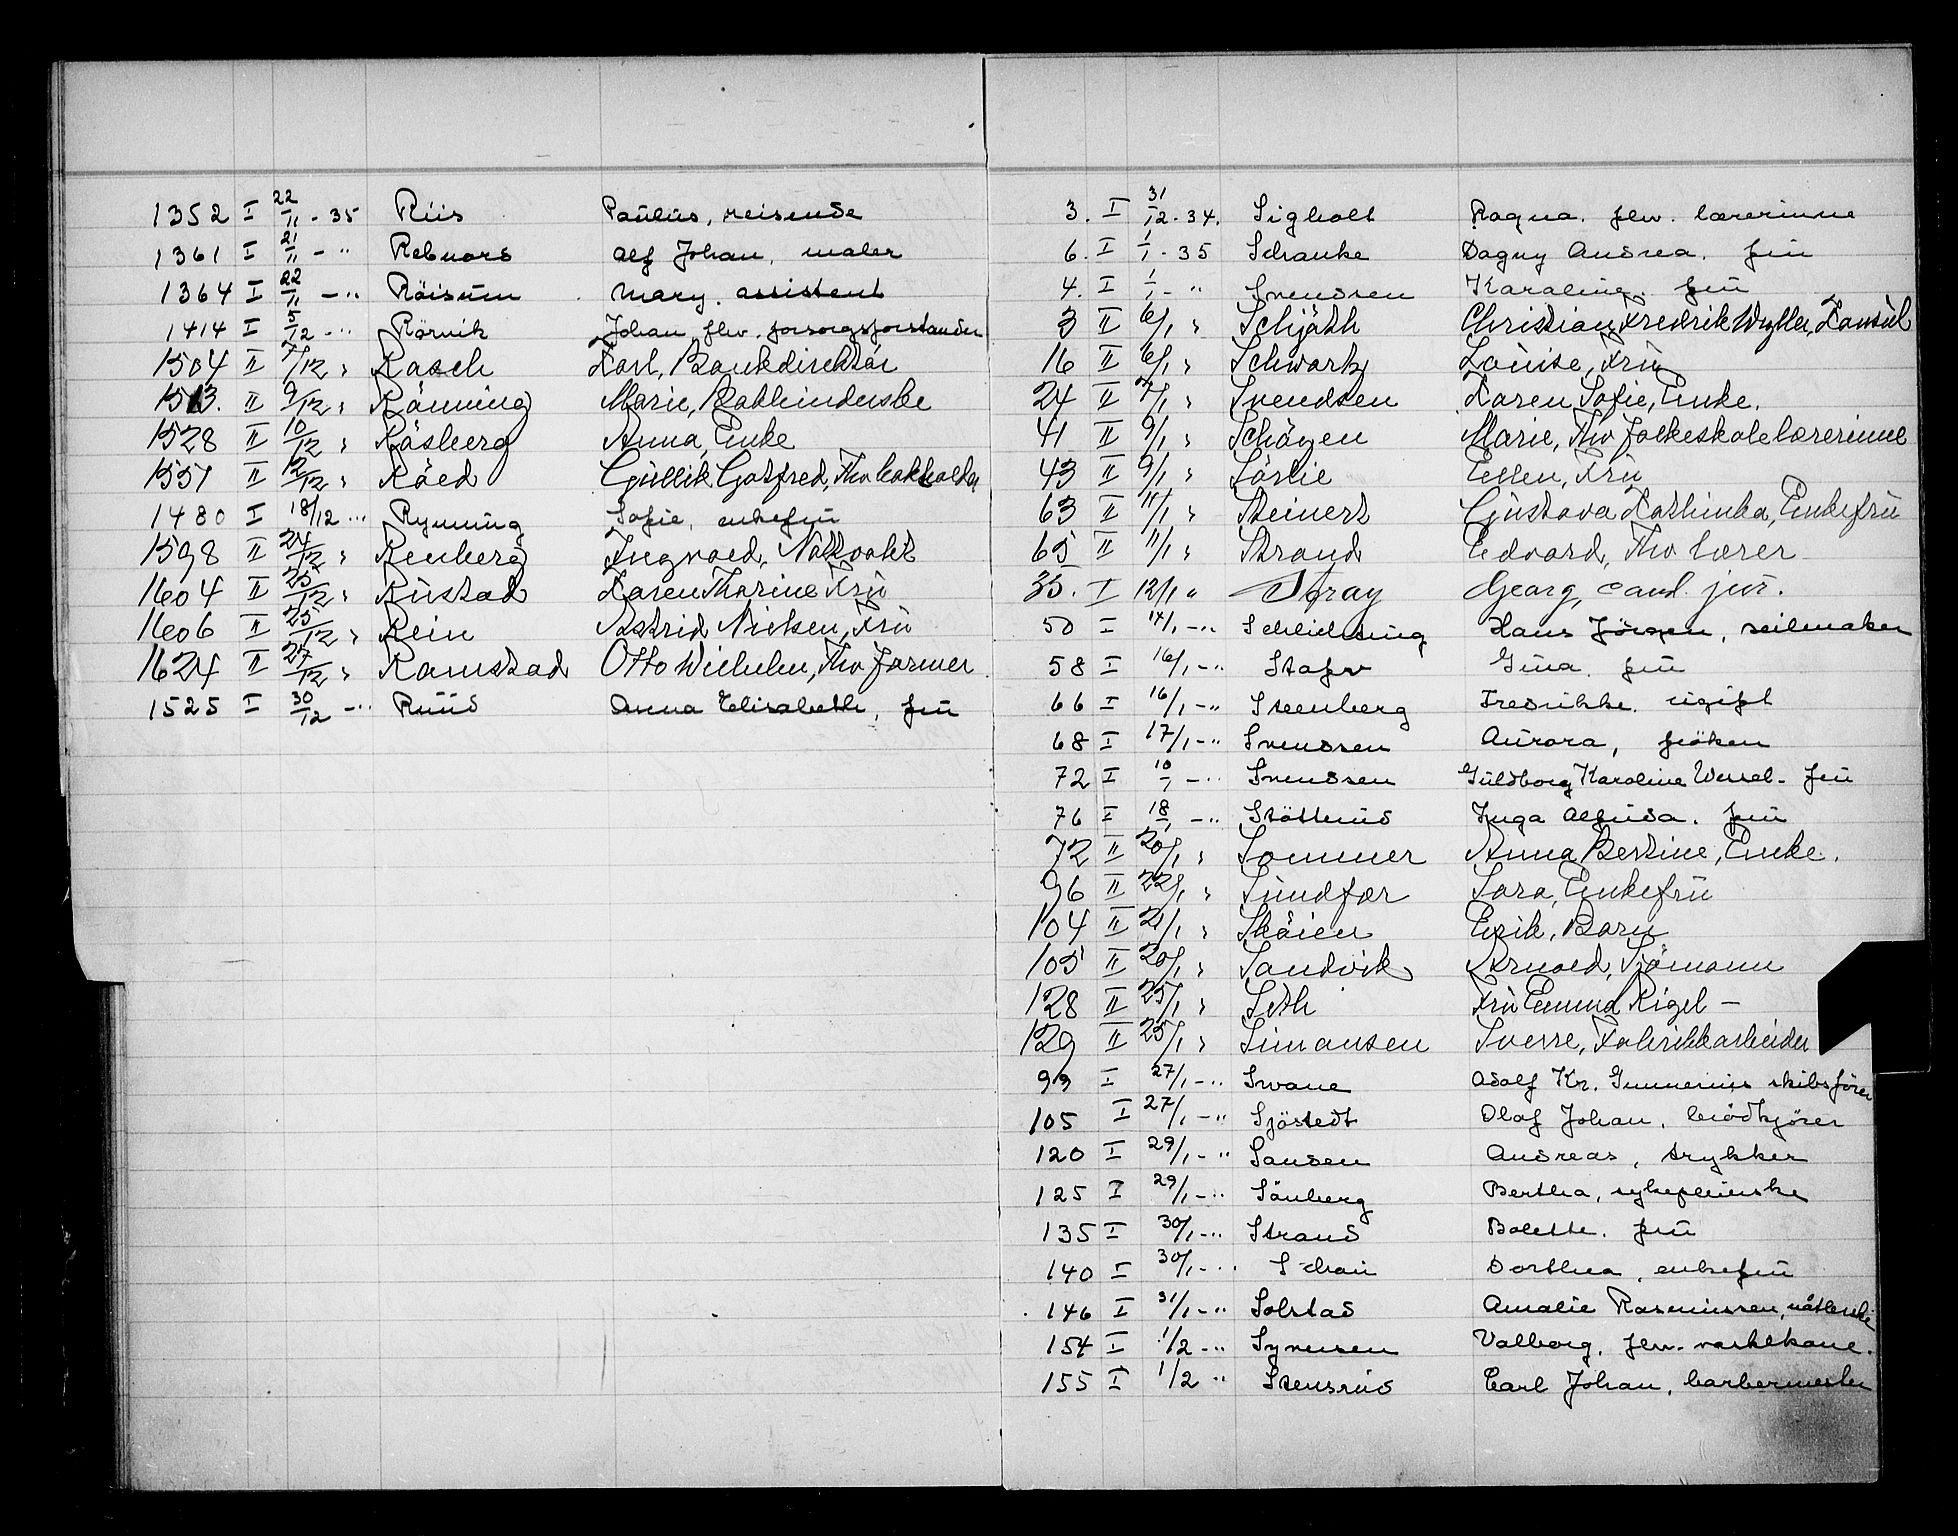 1352 I 22/11 - 35 Riis Paulus, reisende
1361 I 21/11 - " Rebnors Alf Johan, maler
1364 I 22/11 - " Röisum Mary. assistent
1414 I 5/12 - " Rörvik Johan fhv. forsorgsforstander
1504 II 7/12 " Rasch Karl, Bankdirektör
1513. II 9/12 " Rönning Marie, Kokkinderske
1528 II 10/12 " Råsberg Anna, Enke
1551 II 12/12 " Röed Gullik Gotfred, Fhv bokholder
1480 I 18/12 " Rynning Sofie, enkefru
1598 II 24/12 " Renberg Ingvald, Nattvakt
1604 II 25/12 " Rustad Karen Thorine Fru
1606 II 25/12 " Rein Astrid Nielsen, Fru
1624 II 27/12 " Ramstad Otto Wilhelm, Fhv farmer
1525 I 30/12 - " Ruud Anna Elisabeth, fru
3. I 31/12 - 34. Sigholt Ragna. fhv. lærerinne
6. I 1/1 - 35 Schanke Dagny Andrea. fru
4. I 1/1 - " Svendsen Karoline. fru
3 II 6/1 " Schjöth Christian Fredrik Wyller, Konsul
16 II 6/1 " Schwartz Louise, Fru
24 II 7/1 " Svendsen Karen Sofie, Enke.
41 II 9/1 " Schöyen Marie, Fhv folkeskolelærerinne
43 II 9/1 " Sörlie Ellen, Fru
63 II 11/1 " Steinert Gustava Kathinka, Enkefru
65 II 11/1 " Strand Edvard, Fhv lærer
35. I 12/1 " Stray Georg, cand. jur.
50 I 14/1 - " Schlichting Hans Jörgen, seilmaker
58 I 16/1 - " Staff Gina. fru
66 I 16/1 - " Steenberg Fredrikke. ugift
68 I 17/1 - " Svendsen Aurora, fröken
72 I 10/1 - " Svendsen Guldborg Karoline Wessel - fru
76 I 18/1 - " Stöttrud Inga Alfrida. fru
72 II 20/1 " Sommer Anna Bertine, Enke.
96 II 22/1 " Sundfær Sara, Enkefru
104 II 21/1 " Sköien Erik, Barn
105 II 20/1 " Sandvik Arnold, Sjömann
128 II 25/1 " Seth Fru Emma Rigel -
129 II 25/1 " Simonsen Sverre, Fabrikkarbeider
99 I 27/1 - " Svane Adolf Kr. Gunnerius skibsförer
105 I 27/1 - " Sjöstedt Olaf Johan. brödkjörer
120 I 29/1 - " Sansen Andreas, trykker
125 I 29/1 - " Sönberg Bertha, sykepleierske
135 I 30/1 - " Strand Bolette. fru
140 I 30/1 - " Schou Dorthea, enkefru
146 I 31/1 - " Solstad Amalie Rasmussen, nåtlerske
154 I 1/2 - " Synnesen Valborg. fhv. vaskekone.
155 I 1/2 " Stensrud Carl Johan, barbermester